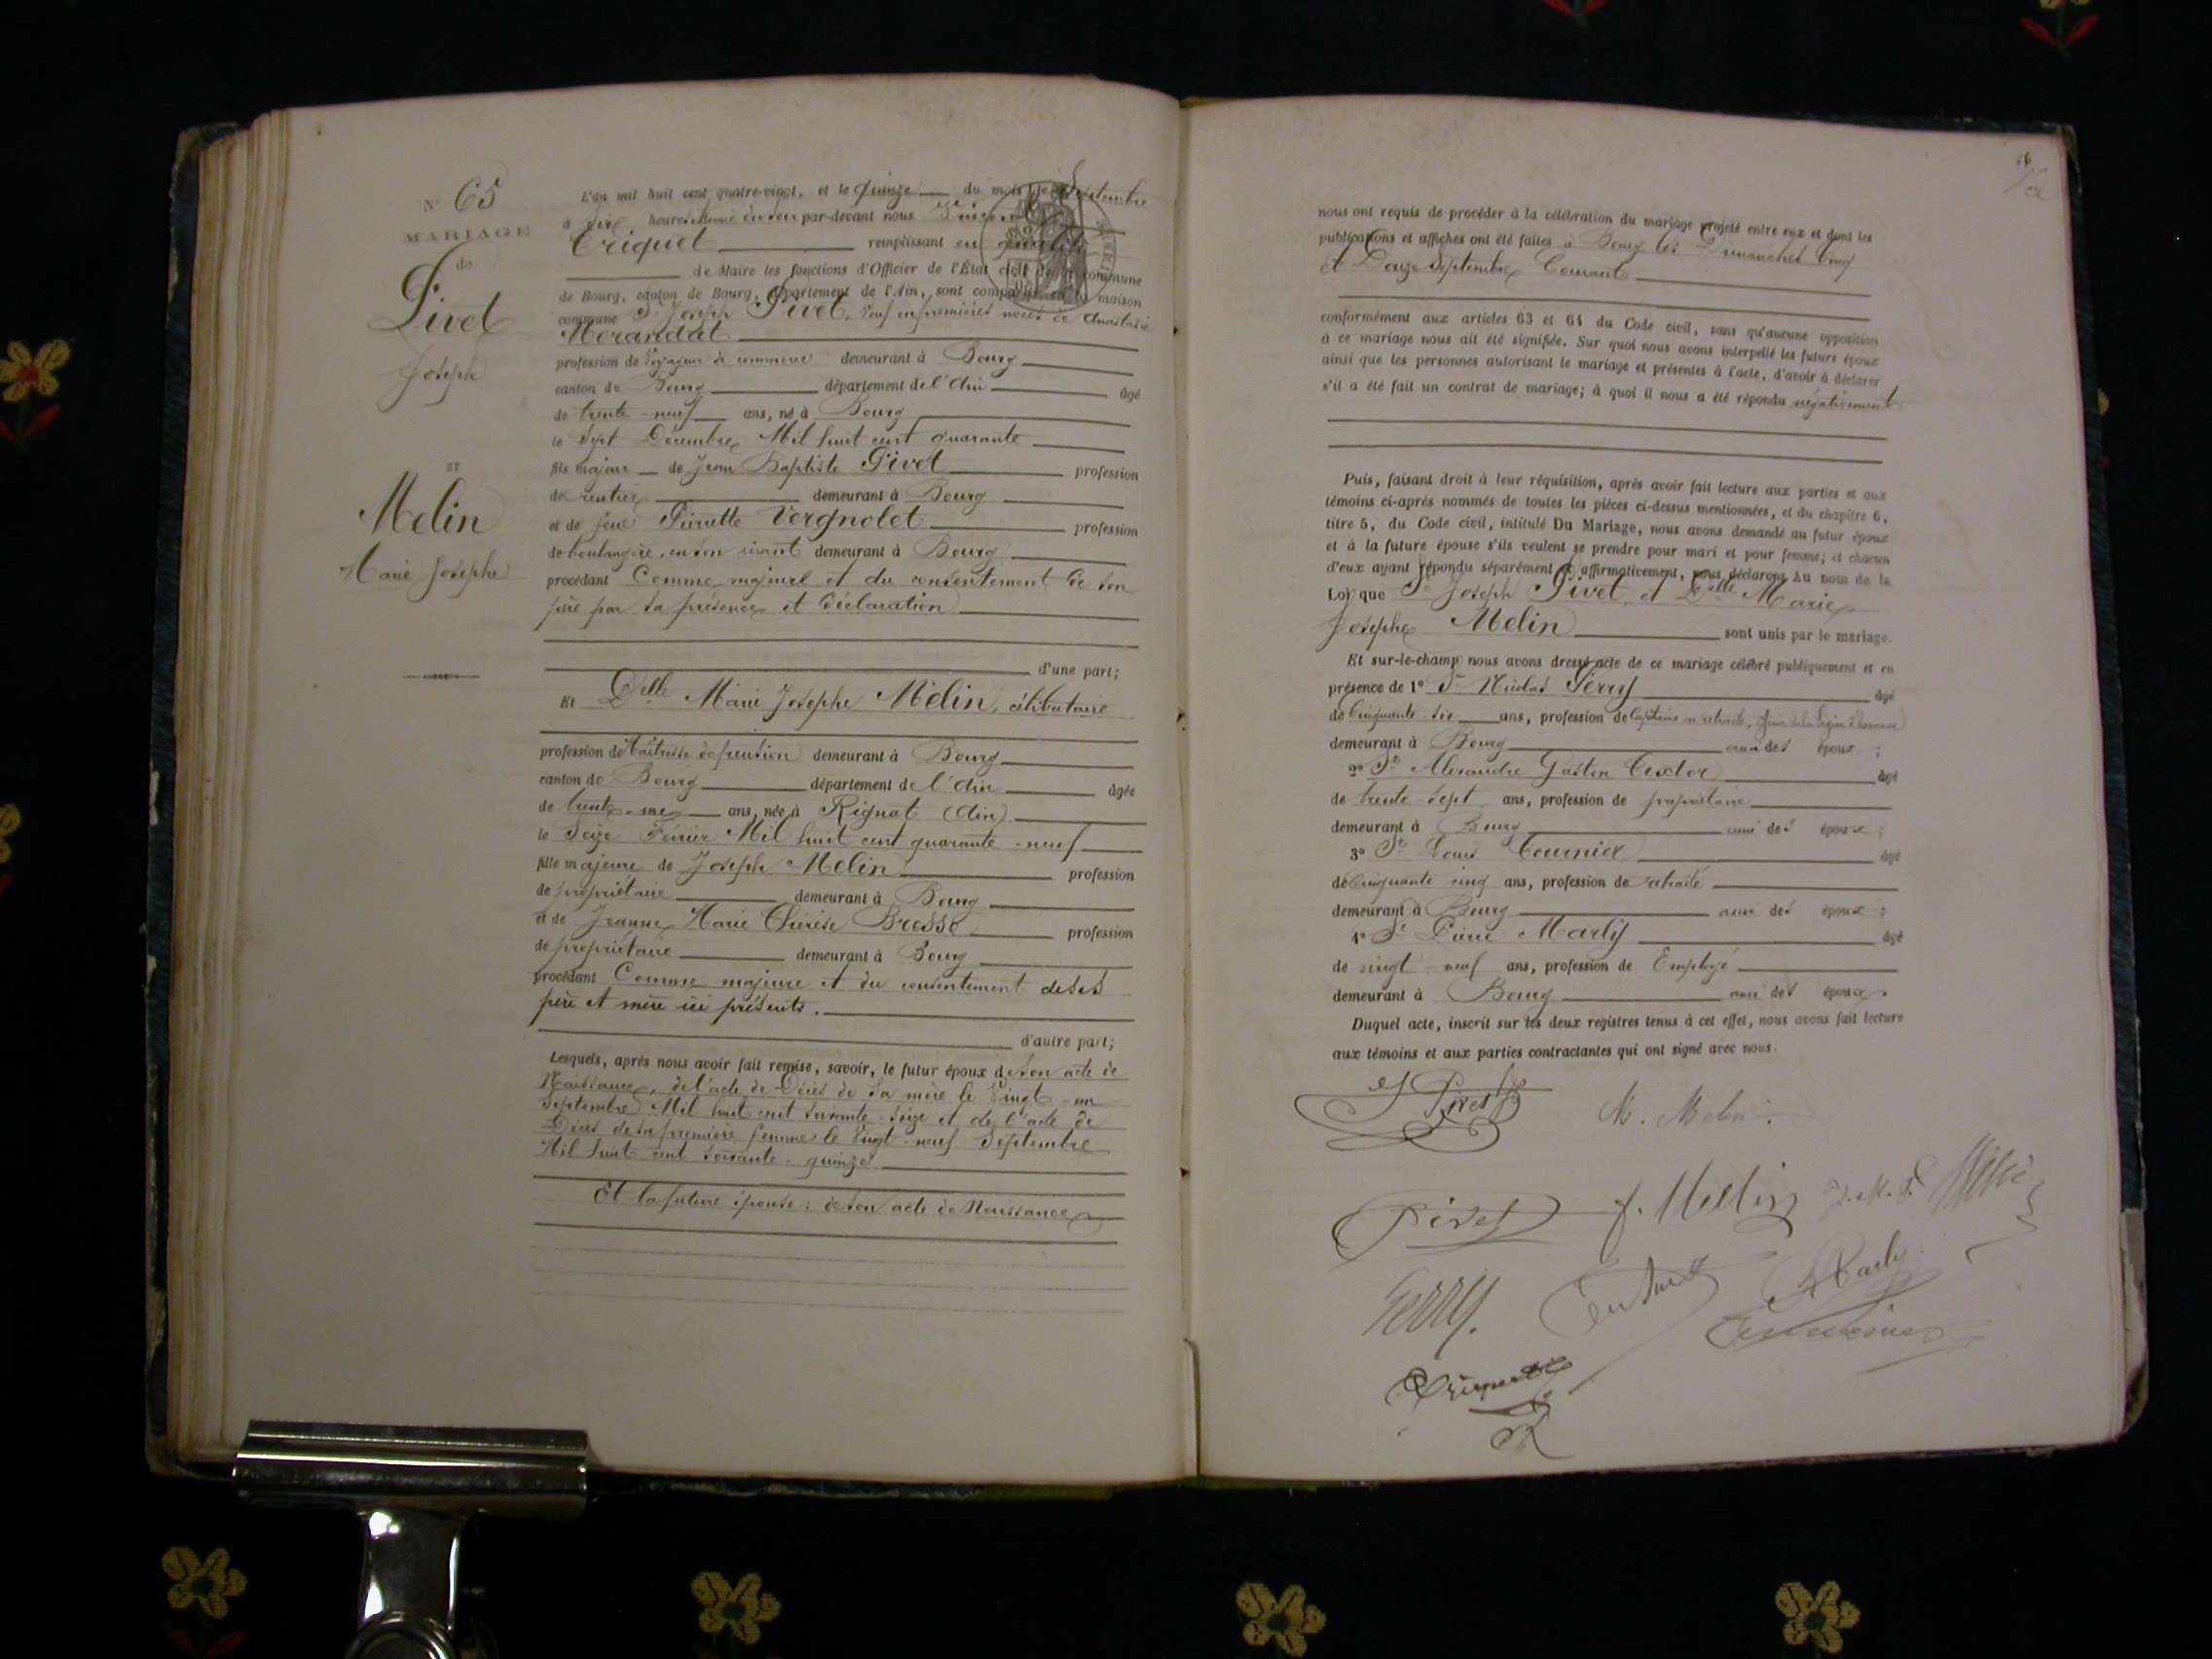 N° 65
MARIAGE
de
Pivet
Joseph
et
Melin
Marie Josephe
L'an mil huit cent quatre-vingt, et le quinze du mois de Septembre
à dix heures du soir par-devant nous Vincent
Triquet remplissant en qualité
de Maire les fonctions d'Officier de l'État civil de la commune
de Bourg, canton de Bourg, département de l'Ain, sont comparus en la maison
commune Sr Joseph Pivet, veuf en premières noces de Anastasie
Morandat
profession de Voyageur de commerce demeurant à Bourg
canton de Bourg département de l'Ain âgé
de trente-neuf ans, né à Bourg
le Sept Décembre Mil huit cent quarante
fils majeur de Jean Baptiste Pivet profession
de rentier demeurant à Bourg
et de feue Pierrette Vergnolet profession
de boulangère, en son vivant demeurant à Bourg
procédant Comme majeur et du consentement de son
père par sa présence et déclaration
d'une part;
Et Delle Marie Josephe Melin, célibataire
profession de Maîtresse de pension demeurant à Bourg
canton de Bourg département de l'Ain âgée
de trente-un ans, née à Rignat (Ain)
le Seize Février Mil huit cent quarante-neuf
fille majeure de Joseph Melin profession
de propriétaire demeurant à Bourg
et de Jeanne Marie Thérèse Bresse profession
de propriétaire demeurant à Bourg
procédant Comme majeure et du consentement de ses
père et mère ici présents.
d'autre part;
Lesquels, après nous avoir fait remise, savoir, le futur époux de son acte de
Naissance, de l'acte de Décès de sa mère le Vingt-un
Septembre Mil huit cent soixante-seize et de l'acte de
Décès de sa première femme le Vingt-neuf Septembre
Mil huit cent soixante-quinze
Et la future épouse : de son acte de Naissance
nous ont requis de procéder à la célébration du mariage projeté entre eux et dont les
publications et affiches ont été faites à Bourg les Dimanches Cinq
et Douze Septembre Courant
conformément aux articles 63 et 64 du Code civil, sans qu'aucune opposition
à ce mariage nous ait été signifiée. Sur quoi nous avons interpellé les futurs époux
ainsi que les personnes autorisant le mariage et présentes à l'acte, d'avoir à déclarer
s'il a été fait un contrat de mariage; à quoi il nous a été répondu négativement
Puis, faisant droit à leur réquisition, après avoir fait lecture aux parties et aux
témoins ci-après nommés de toutes les pièces ci-dessus mentionnées, et du chapitre 6,
titre 5, du Code civil, intitulé Du Mariage, nous avons demandé au futur époux
et à la future épouse s'ils veulent se prendre pour mari et pour femme; et chacun
d'eux ayant répondu séparément et affirmativement, nous déclarons Au nom de la
Loi que Sr Joseph Pivet et Delle Marie
Josephe Melin sont unis par le mariage.
Et sur-le-champ nous avons dressé acte de ce mariage célébré publiquement et en
présence de 1° Sr Nicolas Ferry âgé
de Cinquante six ans, profession de Capitaine en retraite, officier de la Légion d'honneur
demeurant à Bourg ami des époux ;
2° Sr Alexandre Gaston Textor âgé
de trente-sept ans, profession de propriétaire
demeurant à Bourg ami des époux ;
3° Sr Louis Tournier âgé
de Cinquante cinq ans, profession de retraité
demeurant à Bourg ami des époux ;
4° Sr Pierre Marly âgé
de vingt-neuf ans, profession de Employé
demeurant à Bourg ami des époux.
Duquel acte, inscrit sur les deux registres tenus à cet effet, nous avons fait lecture
aux témoins et aux parties contractantes qui ont signé avec nous.
J Pivet
M. Melin.
Pivet J. Mellin
Ferry. Marly
Tournier
Triquet